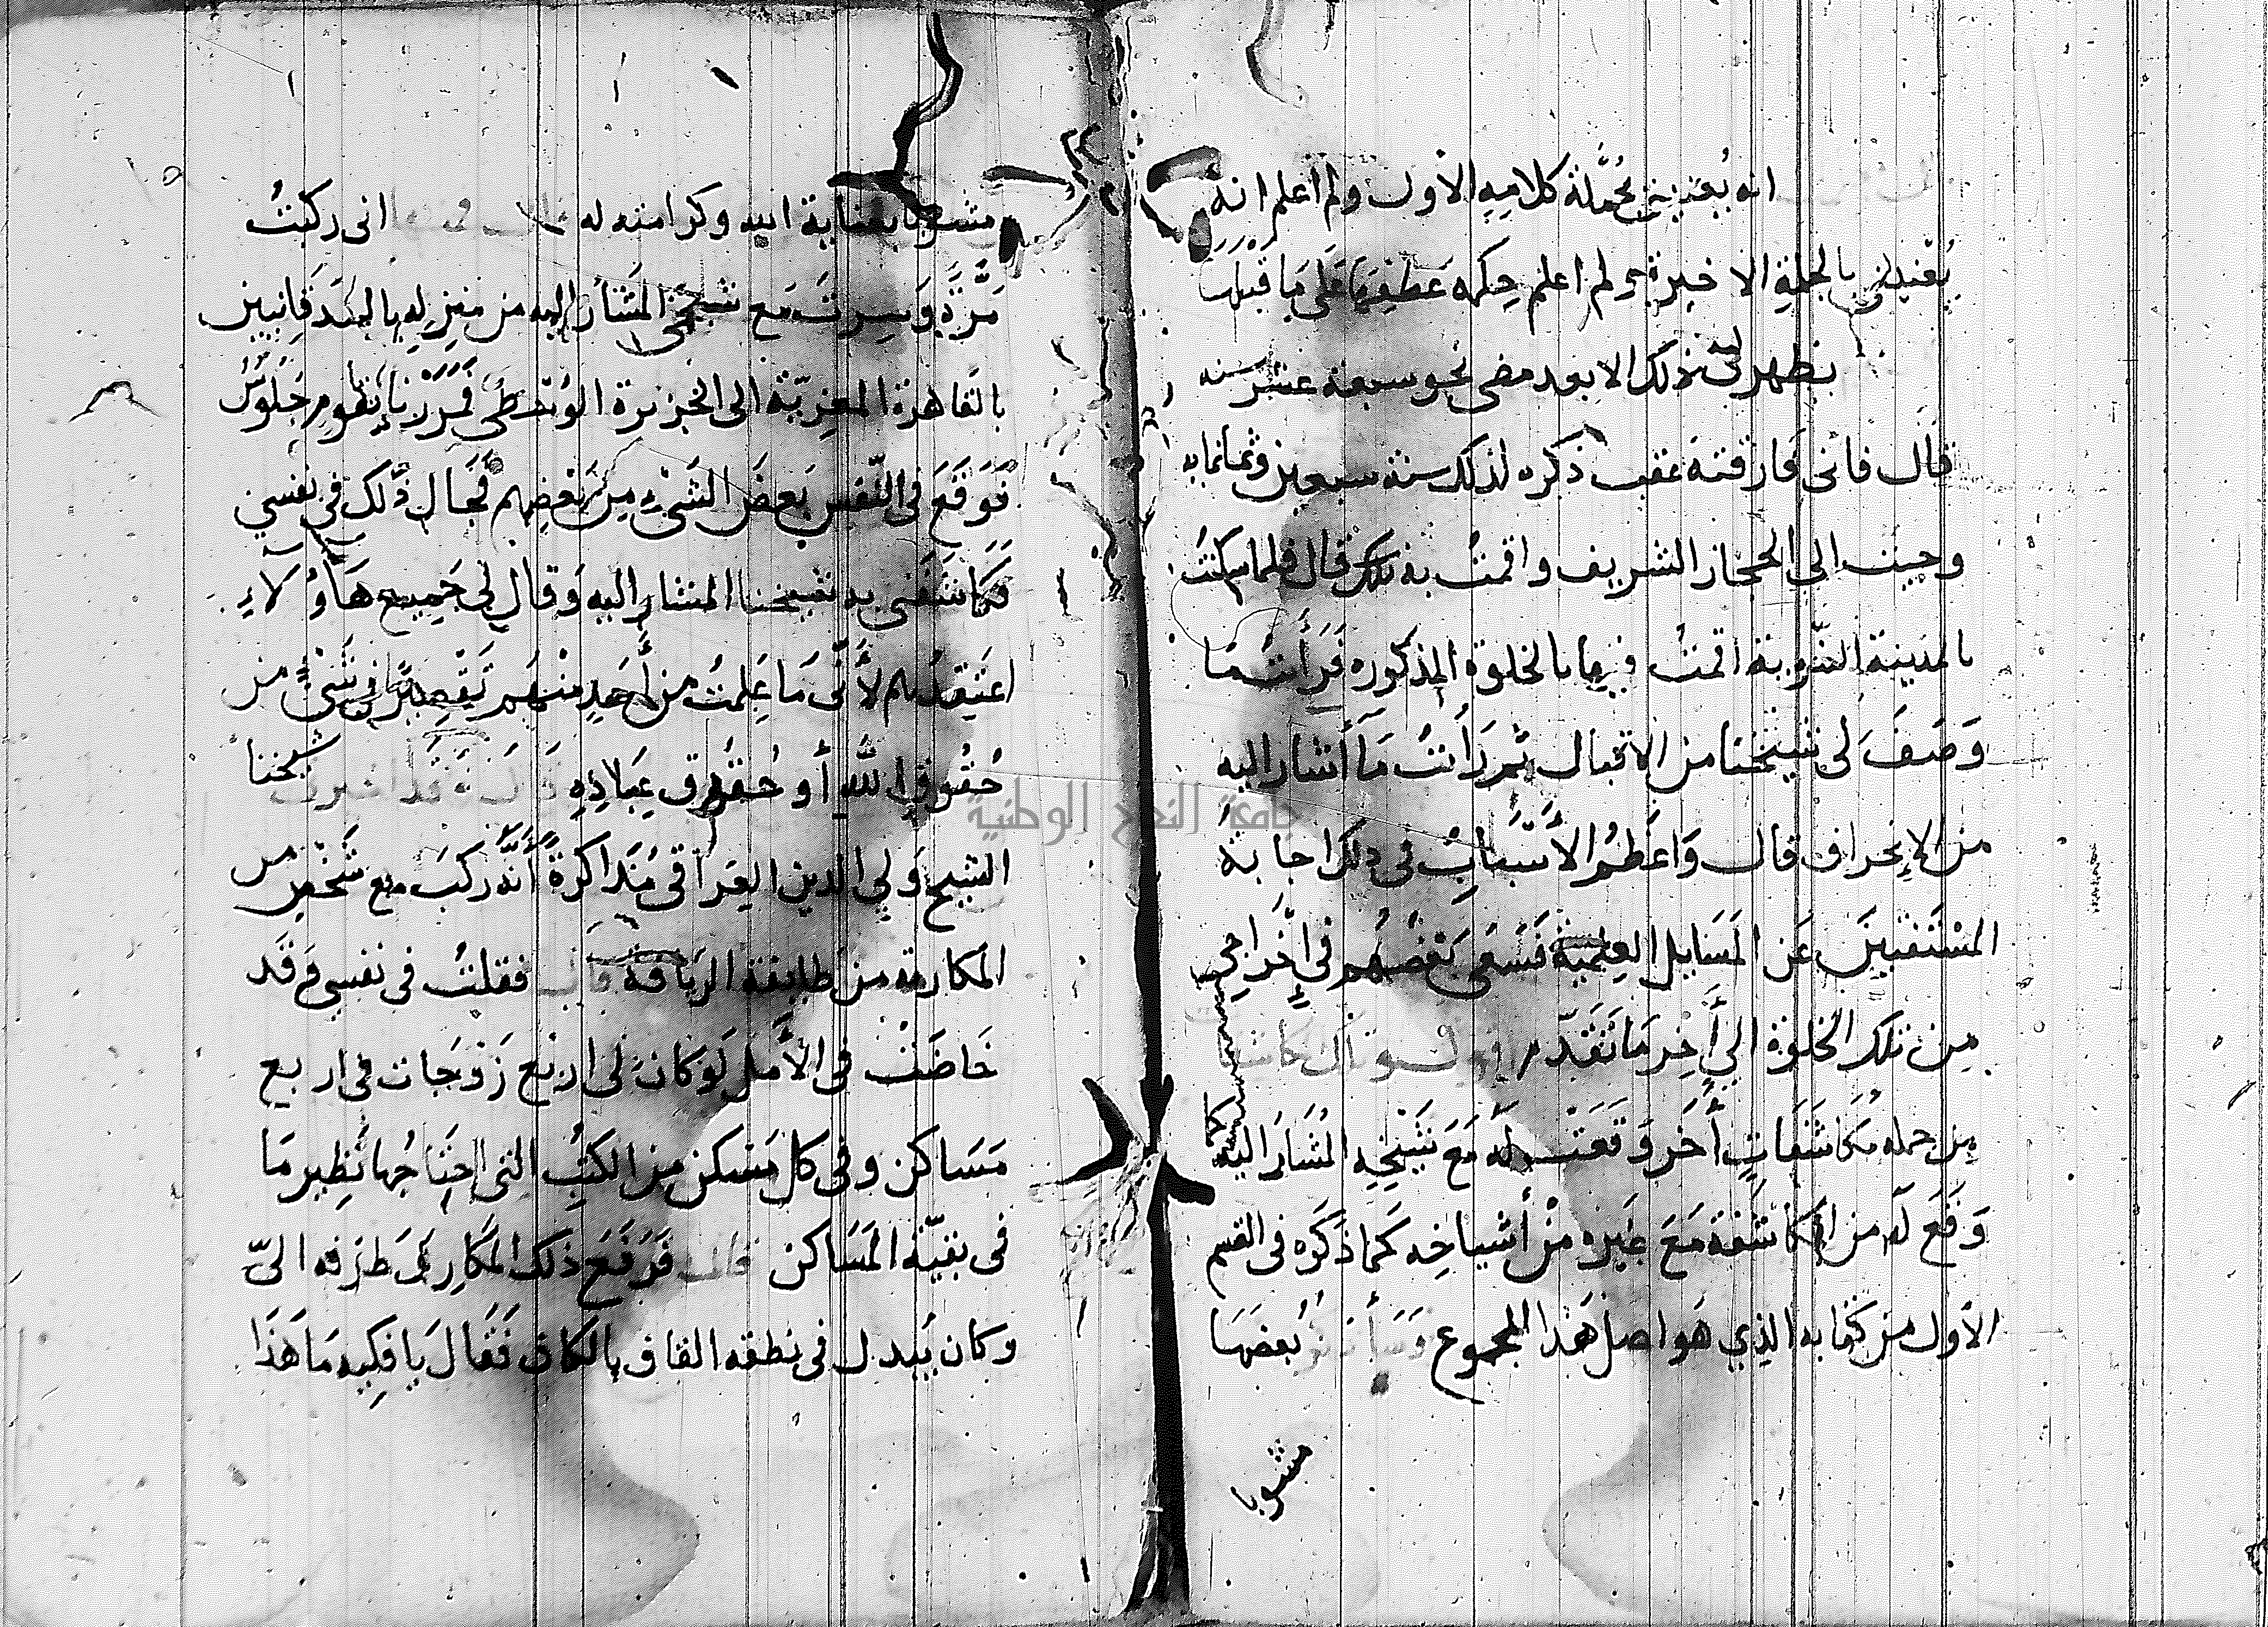 انه يُعنيني بجُملَة كلامِهِ الأول ولم اعلم انهُ
يُعْنيني بالجملةِ الاخيرة ولم اعلم حِكمه عَطفِهَا عَلَى مَا قَبْلَهَا
يظهر لى ذلك الا بعد مضى نحو سبعة عشر سنه
قال فانى فارقته عقب ذكره لذلك سنة سبعين وثمانمايه
وجيت الي الحجاز الشريف واقمتُ به تلك قال فلما سكنتُ
بالمدينة النبوية اقمتُ فيها بالخلوة المذكوره فَرَأيتُ مَا
وَصَفَ لى شيخنا من الاقبال ثم رَأيتُ مَا أشار اليه
من الإنحراف قال وَاعَظمُ الأسْبَابِ في ذلك اجابة
المسْتَفتيينَ عَن المَسَايل العِلميّة فَسَعَى بَعْضُهُم في اخْرَاجى
مِن تلك الخلوة الي أخِر مَا تَقَدّم
مِن جمله مكاشَفَاتٍ أُخَر وَقَعَتْ لَه مَعَ شَيْخِهِ المُشَارَ اليه
وَقَعَ لَه من المكاشفة مَعَ غَيره مِنْ أشياخِه كما ذَكَره في القسم
الأول من كتابه الذي هَو اصل هَذا المجموع وَسَأذكرُ بُعضهَا
مشوبا
٢٢
مشوبا بعناية الله وكرامته له انى ركبتُ
مَرَّة وَسِرتُ مَع شيخى المشَار اليه من منزِلِه بالمَدَقانيين
بالقاهرة المعِزيّة الى الجزيرة الوُسْطَى فَمَرَرْنا بقومٍ جُلُوسٌ
فَوَقَعَ فى النّفس بَعضَ الشَىْءِ مِنْ بَعْضِهم فجَال ذَلك في نفسي
فَكَاشَفَنى به شيخنا المشار اليه وَقال لِي جَمِيع هَاؤلآءِ
اعتقدُهم لأنّى مَا عَلمتُ من أحَدٍ منهُم تَقْصِيرًا في شَىْءٌ من
حُقُوقِ اللهِ أو حُقُوق عِبَادِهِ شيخنا
الشيخ وَلي الدين العِرَاقى مُذَاكرَةً أنَّه رَكبَ مع شَخْصٍ من
المكارية من طايفة الريافة قال فقلتُ في نفسي وَقَد
خَاضَتْ فى الأمل لَو كان لى اربَع زَوجَات في اربع
مَسَاكن وفى كل مَسْكن مِن الكتُبِ التى احْتَاجُها نَظِير مَا
فى بقيّة المَسَاكن قال فَرَفَعَ ذلك المكَارِى طَرْفه الىّ
وكان يُبدل فى نطقه القاف بالكاف فَقَال يَا فكِيه مَا هَذَا
جامعة النجاح الوطنية